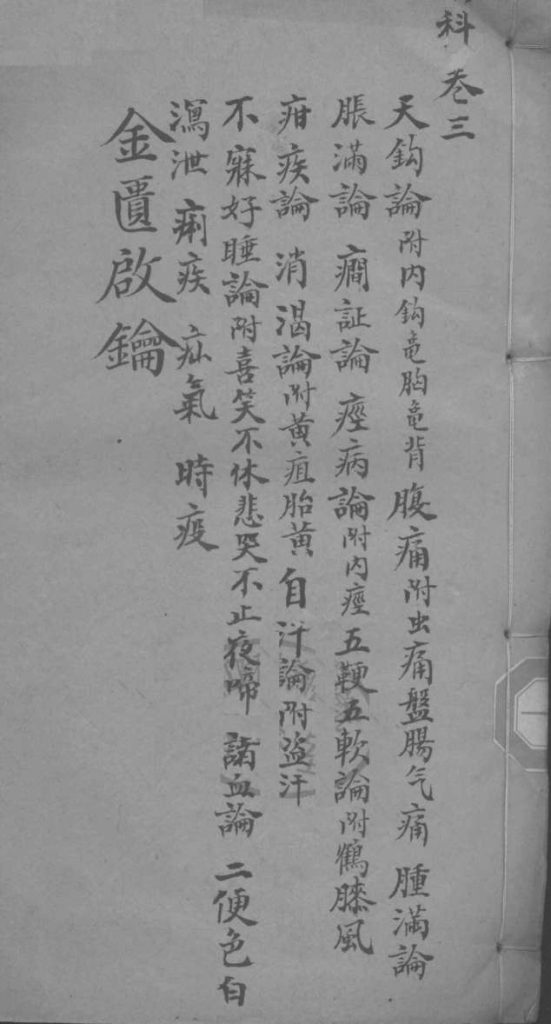 科 卷三
天鈎論附内鈎龟胸龟背 腹痛附虫痛盤腸气痛 腫滿論
脹滿論 癇証論 痙病論附内痙 五鞕五軟論附鶴膝風
疳疾論 消渴論附黃疸胎黃 自汗論附盗汗
不寐好睡論附喜笑不休悲哭不止夜啼 諸血論 二便色白
瀉泄 痢疾 疝氣 時疫
金匱啟鑰